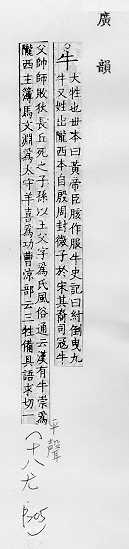 廣韻
牛
大牲也世本曰黃帝臣胲作服牛史記曰紂倒曳九
牛又姓出隴西本自殷周封微子於宋其裔司寇牛
父帥師敗狄長丘死之子孫以王父字爲氏風俗通云漢有牛崇爲
隴西主簿馬文淵爲太守羊喜爲功曹涼部云三牲備具語求切一
平聲
(十八尤